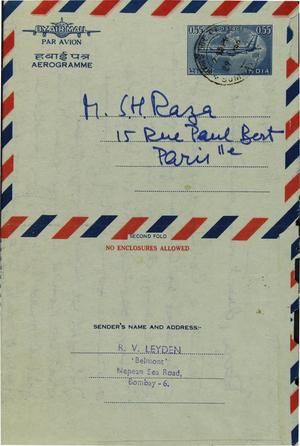 BY AIR MAIL
PAR AVION
हवाई पत्र
AEROGRAMME
0.55 0.55
INDIA
M. S.H. Raza
15 Rue Paul Bert
Paris 11e
SECOND FOLD
NO ENCLOSURES ALLOWED
SENDER'S NAME AND ADDRESS:-
R. V. LEYDEN
'Belmont'
Nepean Sea Road,
Bombay-6.